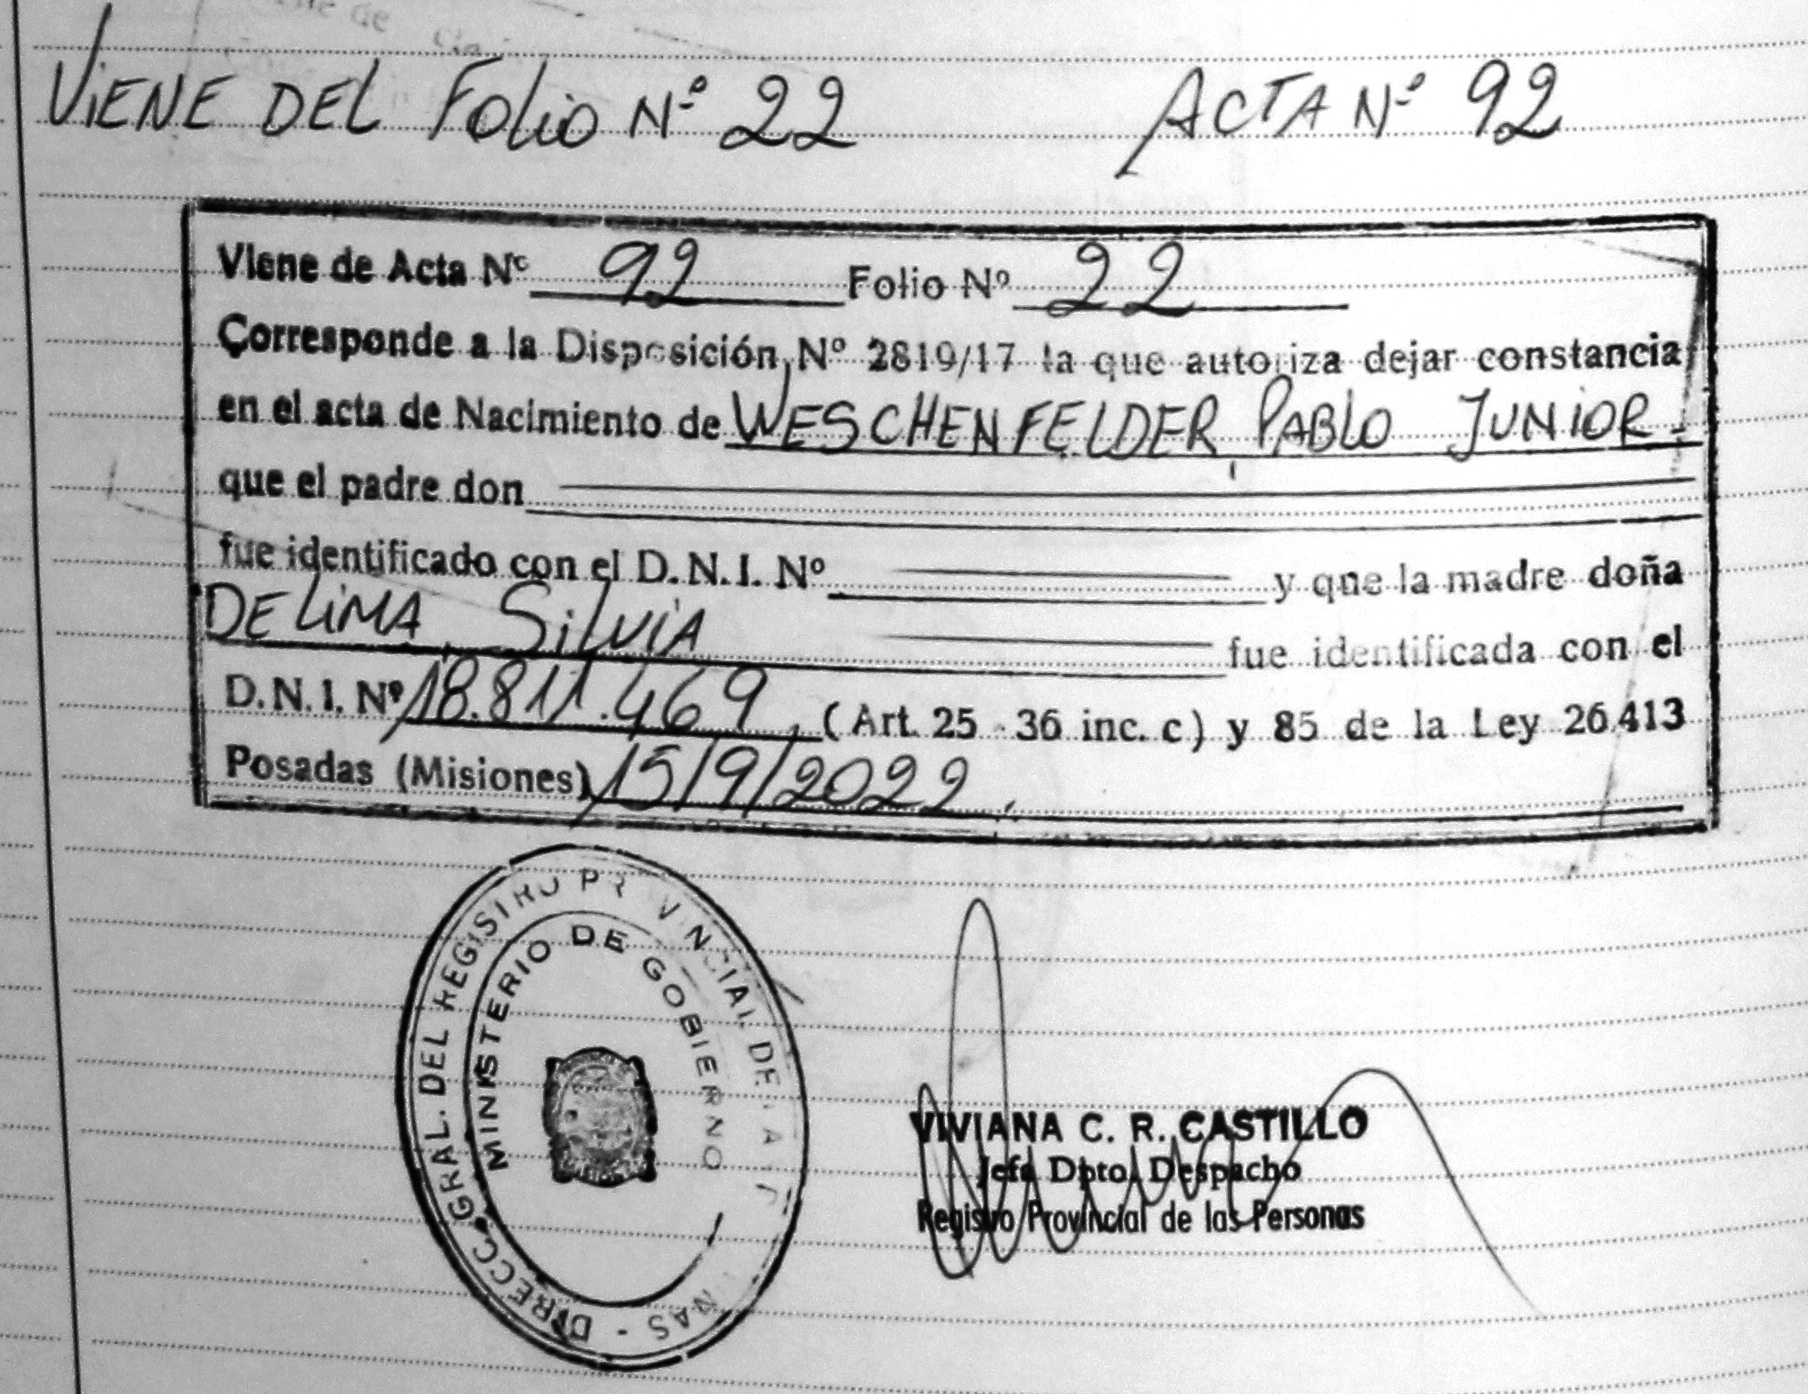 VIENE DEL FOLIO Nº 22 ACTA Nº 92
Viene de Acta Nº 92 Folio Nº 22
Corresponde a la Disposición Nº 2819/17 la que autoriza dejar constancia
en el acta de Nacimiento de WESCHENFELDER, PABLO JUNIOR-
que el padre don
fue identificado con el D.N.I. Nº y que la madre doña
DE LIMA, SILVIA fue identificada con el
D.N.I. Nº 18.811.469, (Art. 25 - 36 inc. c) y 85 de la Ley 26.413
Posadas (Misiones) 15/9/2022.
DIRECC. GRAL. DEL REGISTRO PROVINCIAL DE
MINISTERIO DE GOBIERNO
VIVIANA C. R. CASTILLO
Jefa Dpto. Despacho
Registro Provincial de las Personas